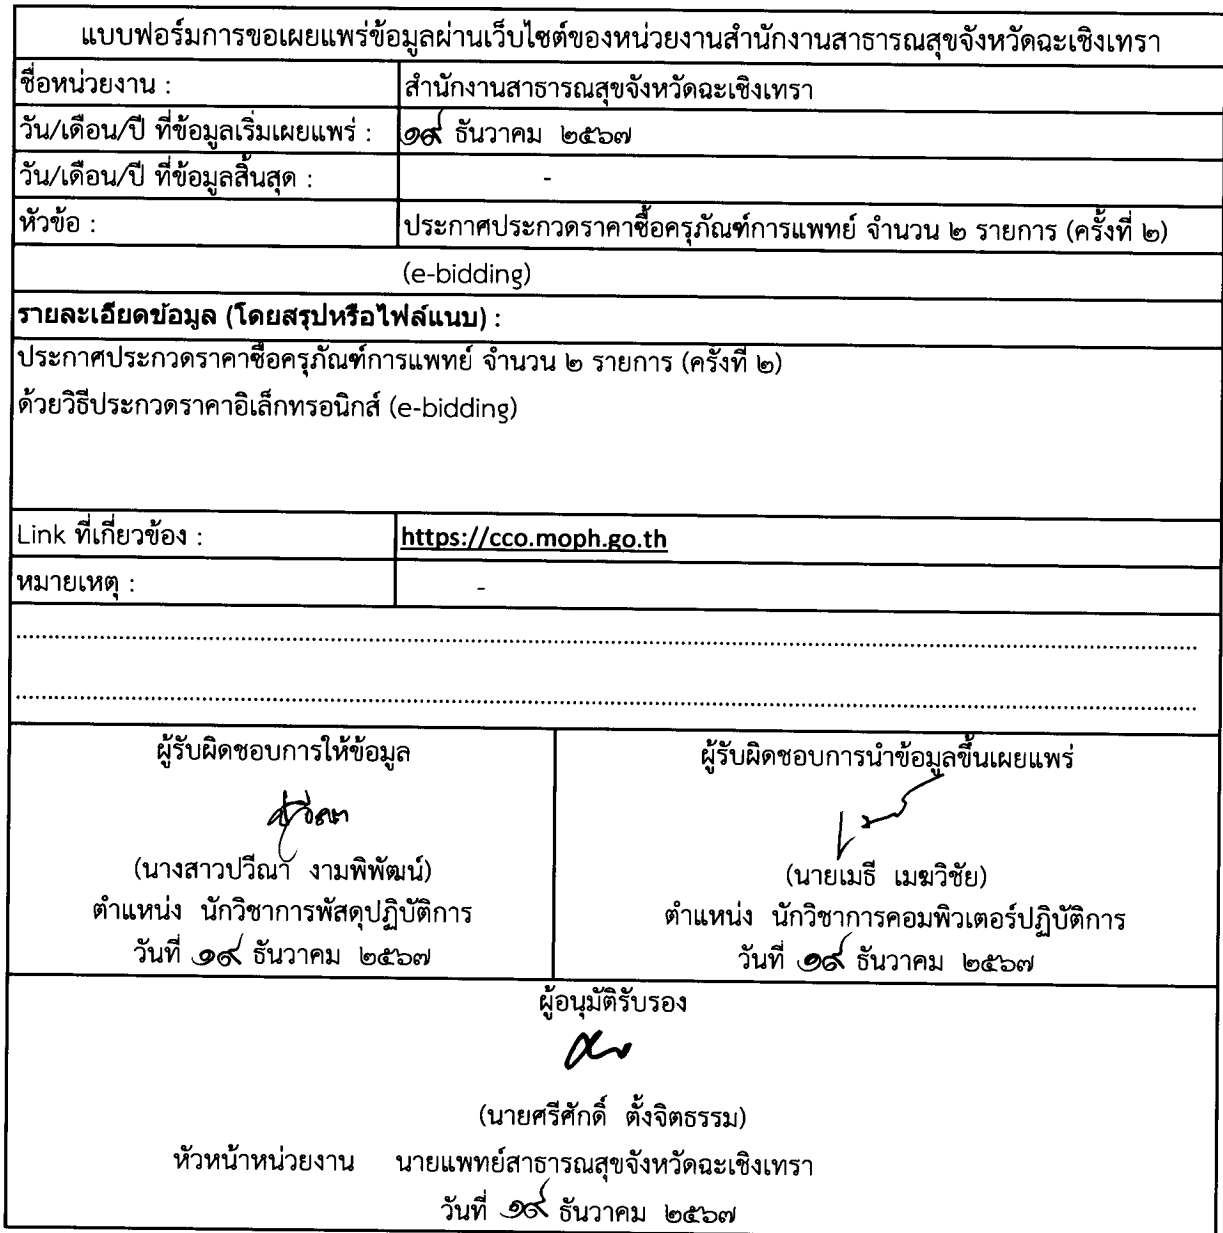 แบบฟอร์มการขอเผยแพร่ข้อมูลผ่านเว็บไซต์ของหน่วยงานสำนักงานสาธารณสุขจังหวัดฉะเชิงเทรา
ชื่อหน่วยงาน : สำนักงานสาธารณสุขจังหวัดฉะเชิงเทรา
วัน/เดือน/ปี ที่ข้อมูลเริ่มเผยแพร่ : ๑๙ ธันวาคม ๒๕๖๗
วัน/เดือน/ปี ที่ข้อมูลสิ้นสุด : -
หัวข้อ : ประกาศประกวดราคาซื้อครุภัณฑ์การแพทย์ จำนวน ๒ รายการ (ครั้งที่ ๒)
(e-bidding)
รายละเอียดข้อมูล (โดยสรุปหรือไฟล์แนบ) :
ประกาศประกวดราคาซื้อครุภัณฑ์การแพทย์ จำนวน ๒ รายการ (ครั้งที่ ๒)
ด้วยวิธีประกวดราคาอิเล็กทรอนิกส์ (e-bidding)
Link ที่เกี่ยวข้อง : https://cco.moph.go.th
หมายเหตุ : -
ผู้รับผิดชอบการให้ข้อมูล
ปวีณา
(นางสาวปวีณา งามพิพัฒน์)
ตำแหน่ง นักวิชาการพัสดุปฏิบัติการ
วันที่ ๑๙ ธันวาคม ๒๕๖๗
ผู้รับผิดชอบการนำข้อมูลขึ้นเผยแพร่
(นายเมธี เมฆวิชัย)
ตำแหน่ง นักวิชาการคอมพิวเตอร์ปฏิบัติการ
วันที่ ๑๙ ธันวาคม ๒๕๖๗
ผู้อนุมัติรับรอง
(นายศรีศักดิ์ ตั้งจิตธรรม)
หัวหน้าหน่วยงาน นายแพทย์สาธารณสุขจังหวัดฉะเชิงเทรา
วันที่ ๑๙ ธันวาคม ๒๕๖๗